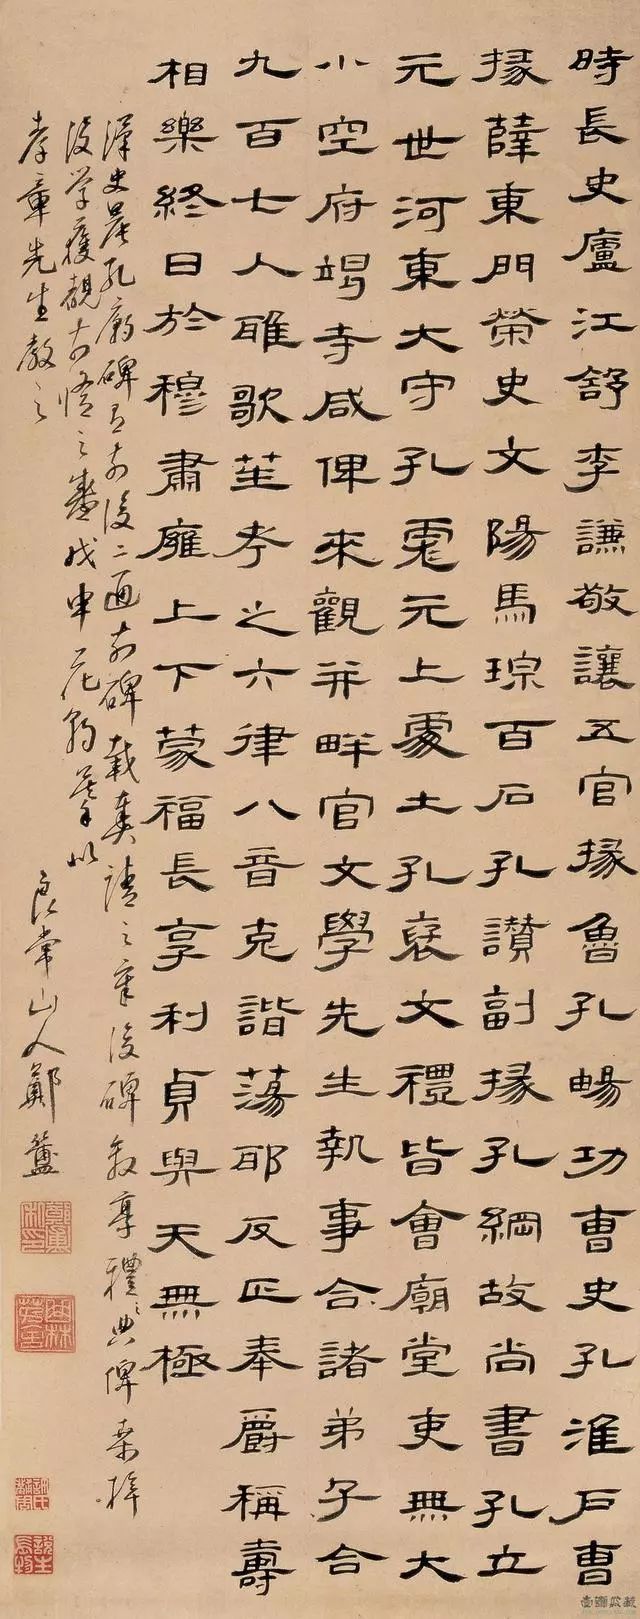 時長史廬江舒李謙敬讓五官掾魯孔暢功曹史孔淮戶曹
掾薛東門榮史文陽馬琮百石孔讃副掾孔綱故尚書孔立
元世河東大守孔彪元上處土孔褒文禮皆會廟堂吏無大
小空府竭寺咸俾來觀并畔官文學先生執事合諸弟子合
九百七人雎歌笙考之六律八音克諧蕩耶反正奉爵稱壽
相樂終日於穆肅雍上下蒙福長享利貞與天無極
漢史晨孔廟碑有前後二通前碑載奏請之章後碑敘享禮之典俾來梓
後学獲觀
戊申花朝摹以
孝章先生教之
良常山人鄭簠